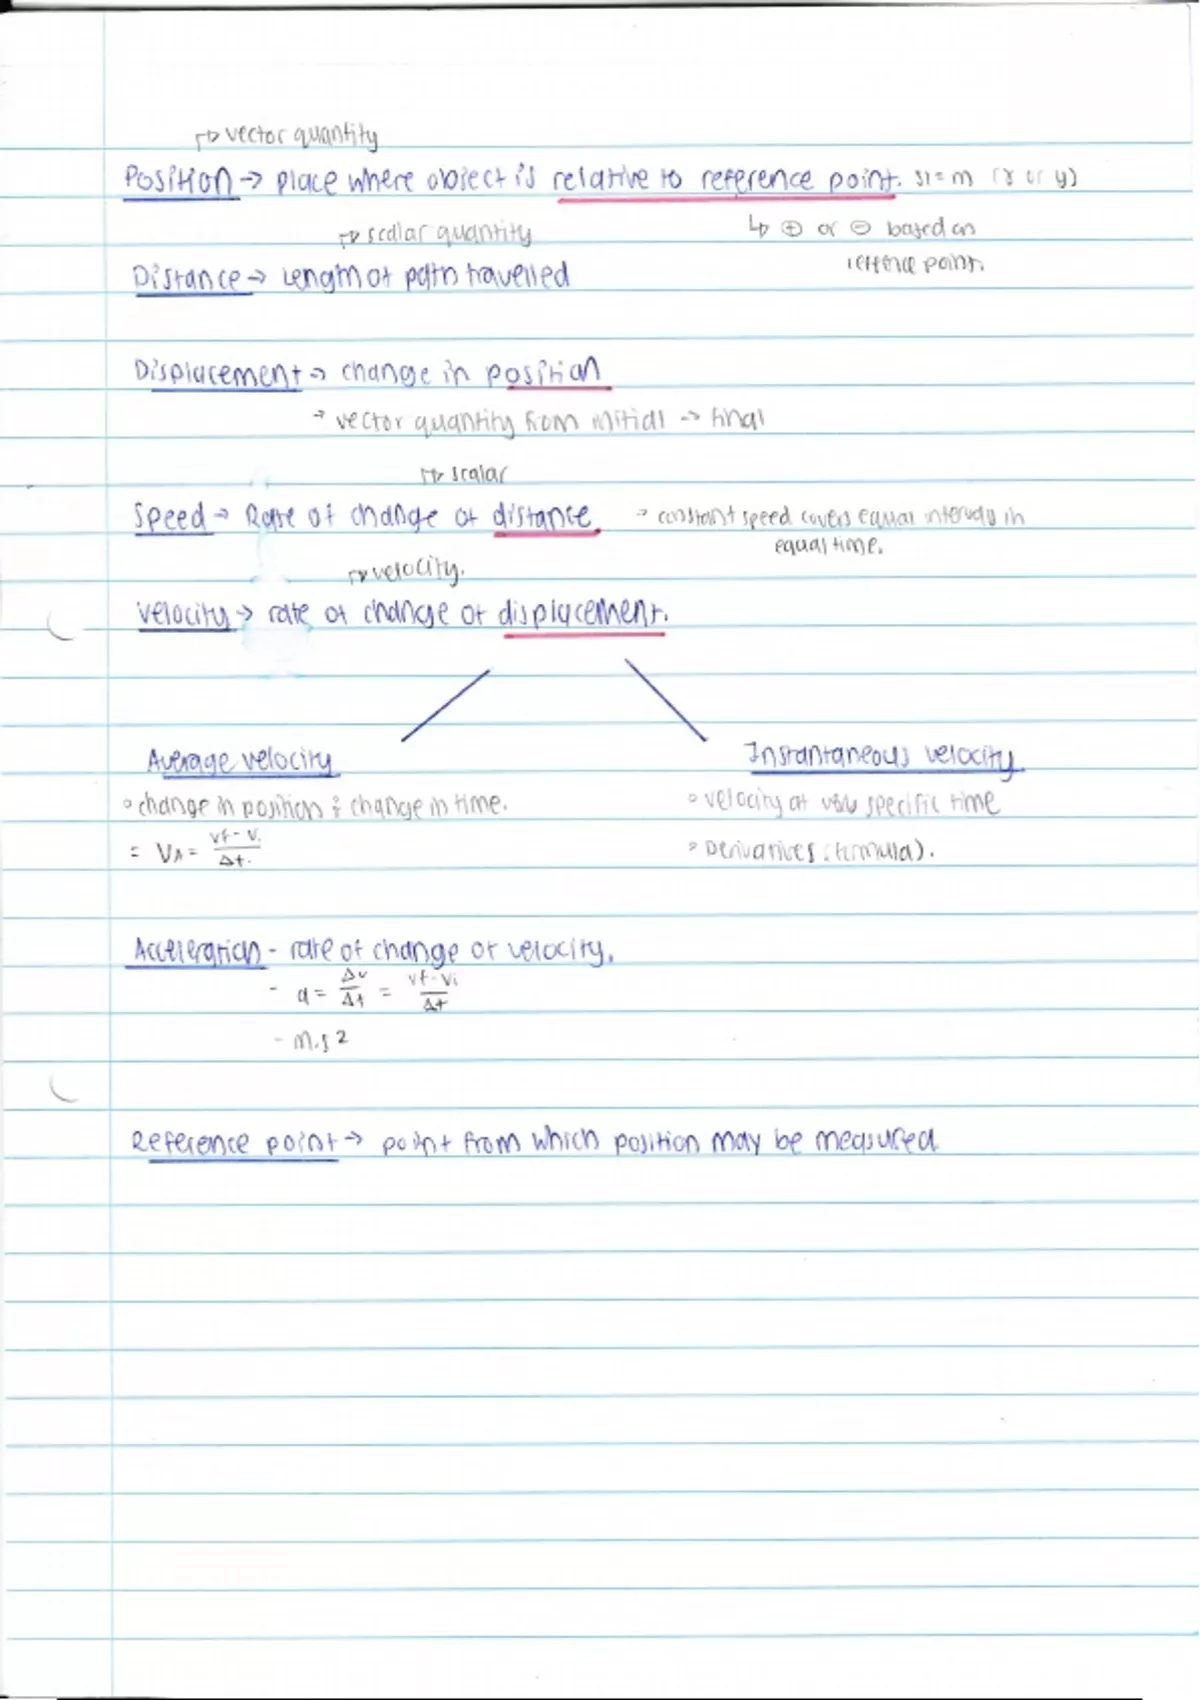 ↱ vector quantity
Position → place where object is relative to reference point. SI = m (x or y)
↱ scalar quantity
↳ ⊕ or ⊖ based on
refence point.
Distance → Length of path travelled
Displacement → change in position
→ vector quantity from initial → final
↱ scalar
Speed → Rate of change of distance. → constant speed covers equal intervals in
equal time.
↱ velocity.
Velocity → rate of change of displacement.
Average velocity
Instantaneous velocity
∘ change in position ÷ change in time.
= VA = vf - vi / Δt.
∘ velocity at specific time
∘ Derivatives (formula).
Acceleration - rate of change of velocity.
- a = Δv/Δt = vf - vi / Δt
- m.s 2
Reference point → point from which position may be measured